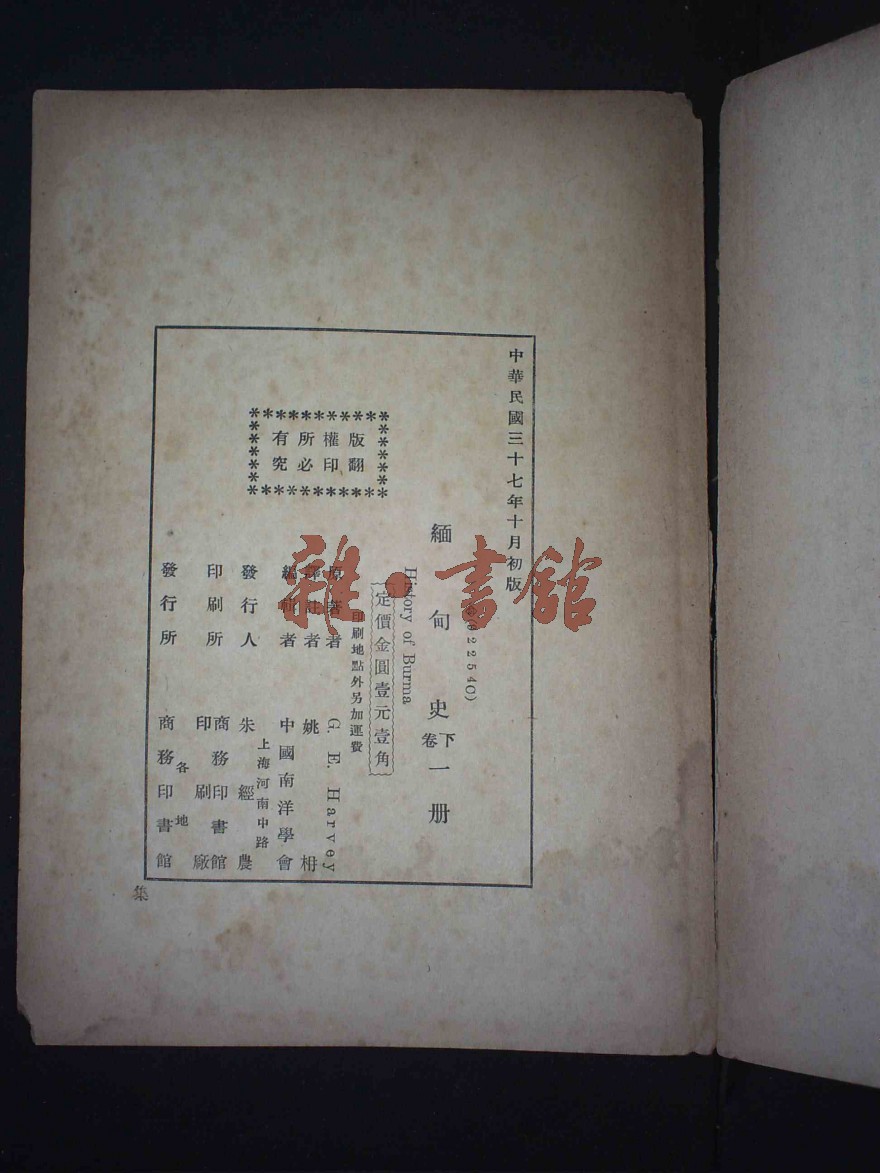 中華民國三十七年十月初版
2254(C)
緬甸史下卷一册
History of Burma
定價金圓壹元壹角
印刷地點外另加運費
版權所有
翻印必究
原著者 G. E. Harvey
譯註者 姚枏
編輯者 中國南洋學會
發行人 朱經農
上海河南中路
印刷所 商務印書館印刷廠
發行所 各地商務印書館
集
雜·書館